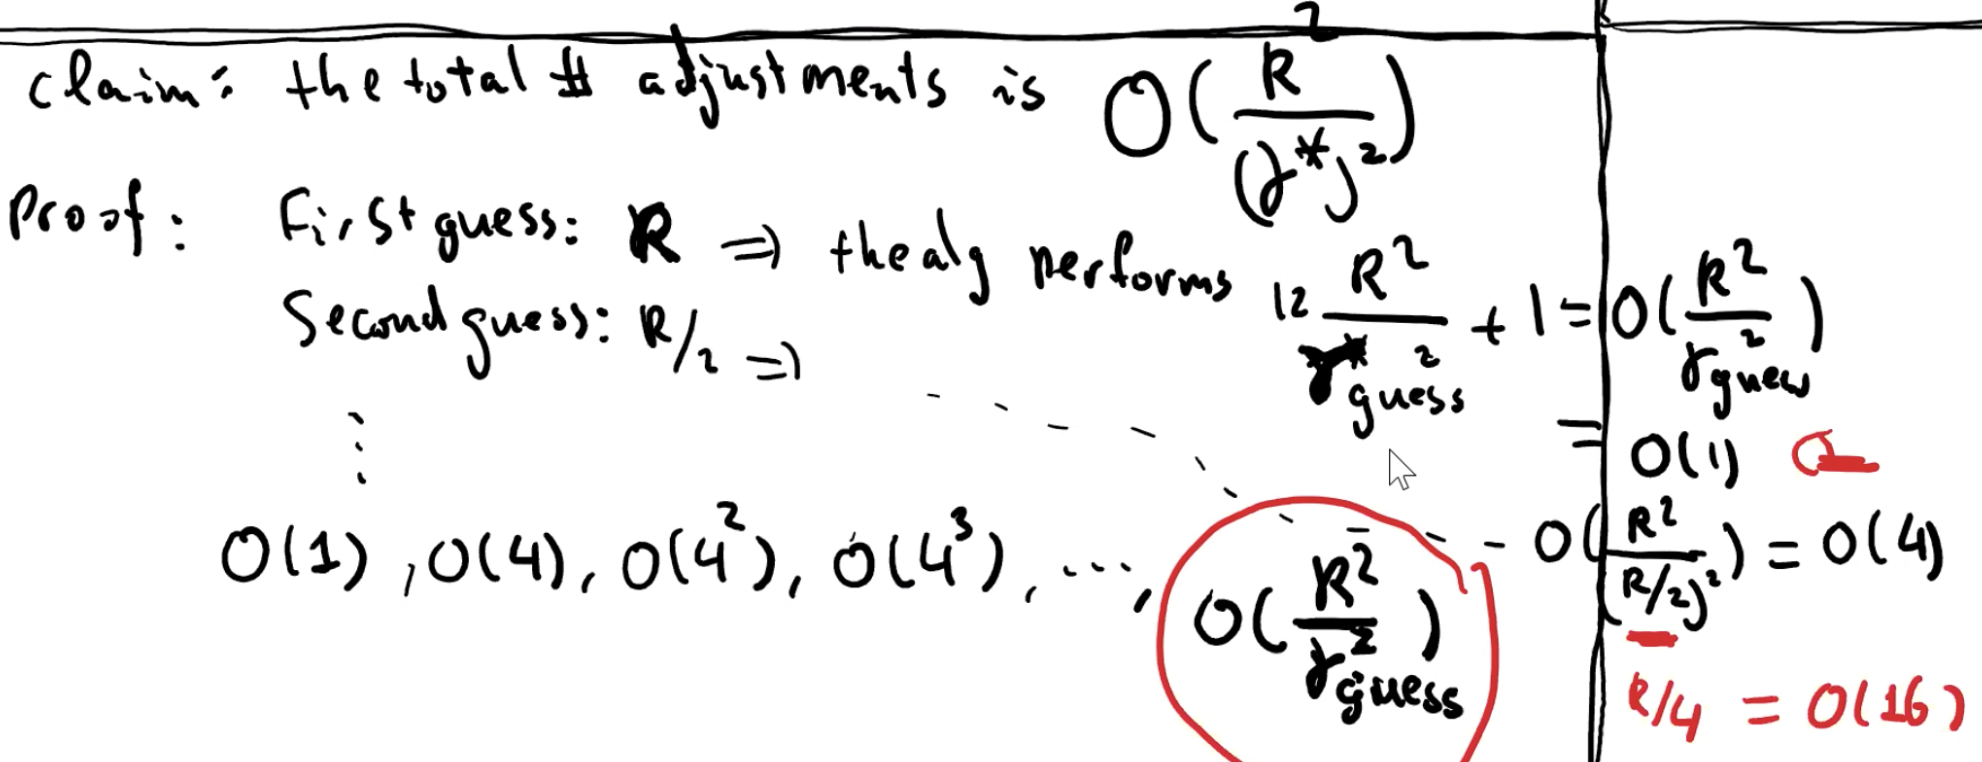 claim: the total # adjustments is O(R²/(γ*)²)
Proof: First guess: R ⇒ the alg performs 12 R²/γ*²guess + 1 = O(R²/γ²guess)
Second guess: R/2 ⇒
= O(1)
⋮
- - - O(R²/(R/2)²) = O(4)
O(1), O(4), O(4²), O(4³), ..., O(R²/γ²guess)
R/4 = O(16)